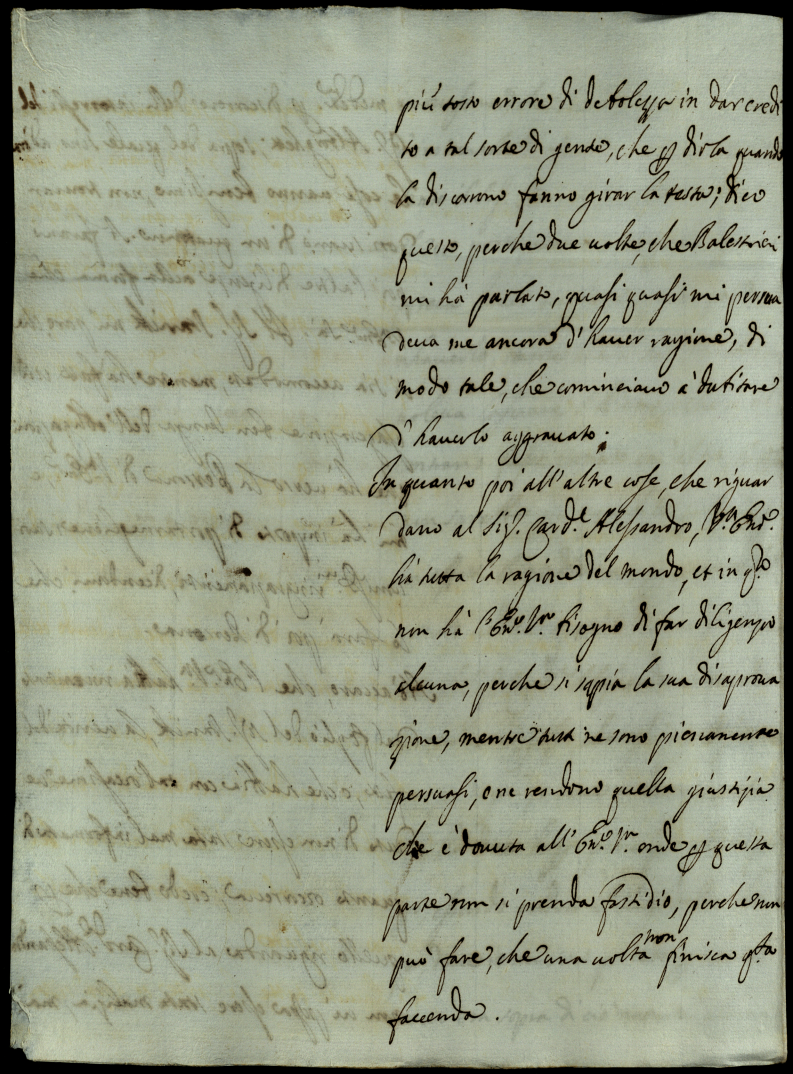 più tosto errore di debolezza in dar credi
to a tal sorte di gente, che p dirla quando
la discorrono fanno girar la testa; dico
questo, perche due uolte, che Balestrieri
mi hà parlato, quasi quasi mi persua
deua me ancora d'hauer ragione, di
modo tale, che cominciauo à dubitare
d'hauerlo aggrauato.
In quanto poi all'altre cose, che riguar
dano al Sig.r Card.l Alessandro, V.ra Em.za
hà tutta la ragione del mondo, et in q.to
non hà l'Em.za V.ra bisogno di far diligenza
alcuna, perche si sapia la sua disaproua
zione, mentre tutti ne sono pienamente
persuasi, e ne rendono quella giustizia
che è douuta all'Em.za V.ra onde p questa
parte non si prenda fastidio, perche non
può fare, che una uolta non finisca q.ta
facenda.